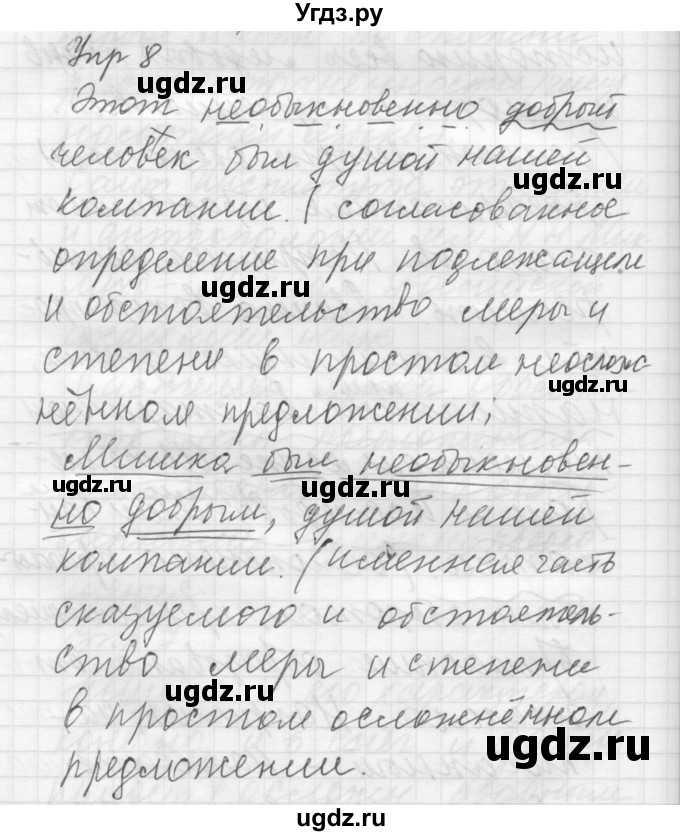 Угдз.ру
Упр 8
Этот необыкновенно добрый
человек был душой нашей
ugdz.ru
компании. (согласованное
определение при подлежащем
ugdz.ru
и обстоятельство меры и
степени в простом неослож-
ugdz.ru
нённом предложении;
Мишка был необыкновен-
ugdz.ru
ugdz.ru
но добрым, душой нашей
компании. (именная часть
ugdz.ru
сказуемого и обстоятель-
ство меры и степени
ugdz.ru
в простом осложнённом
ugdz.ru
предложении.
ugdz.ru